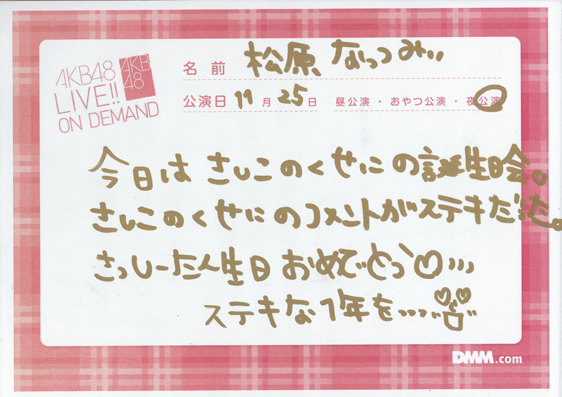 AKB48
LIVE!!
ON DEMAND
AKB
48
名前 松原なっつみぃ
公演日 11月25日 昼公演・おやつ公演・夜公演
今日はさしこのくせにの誕生日会。
さしこのくせにのコメントがステキだった。
さっしーたん生日おめでとう♡…
ステキな1年を…
DMM.com